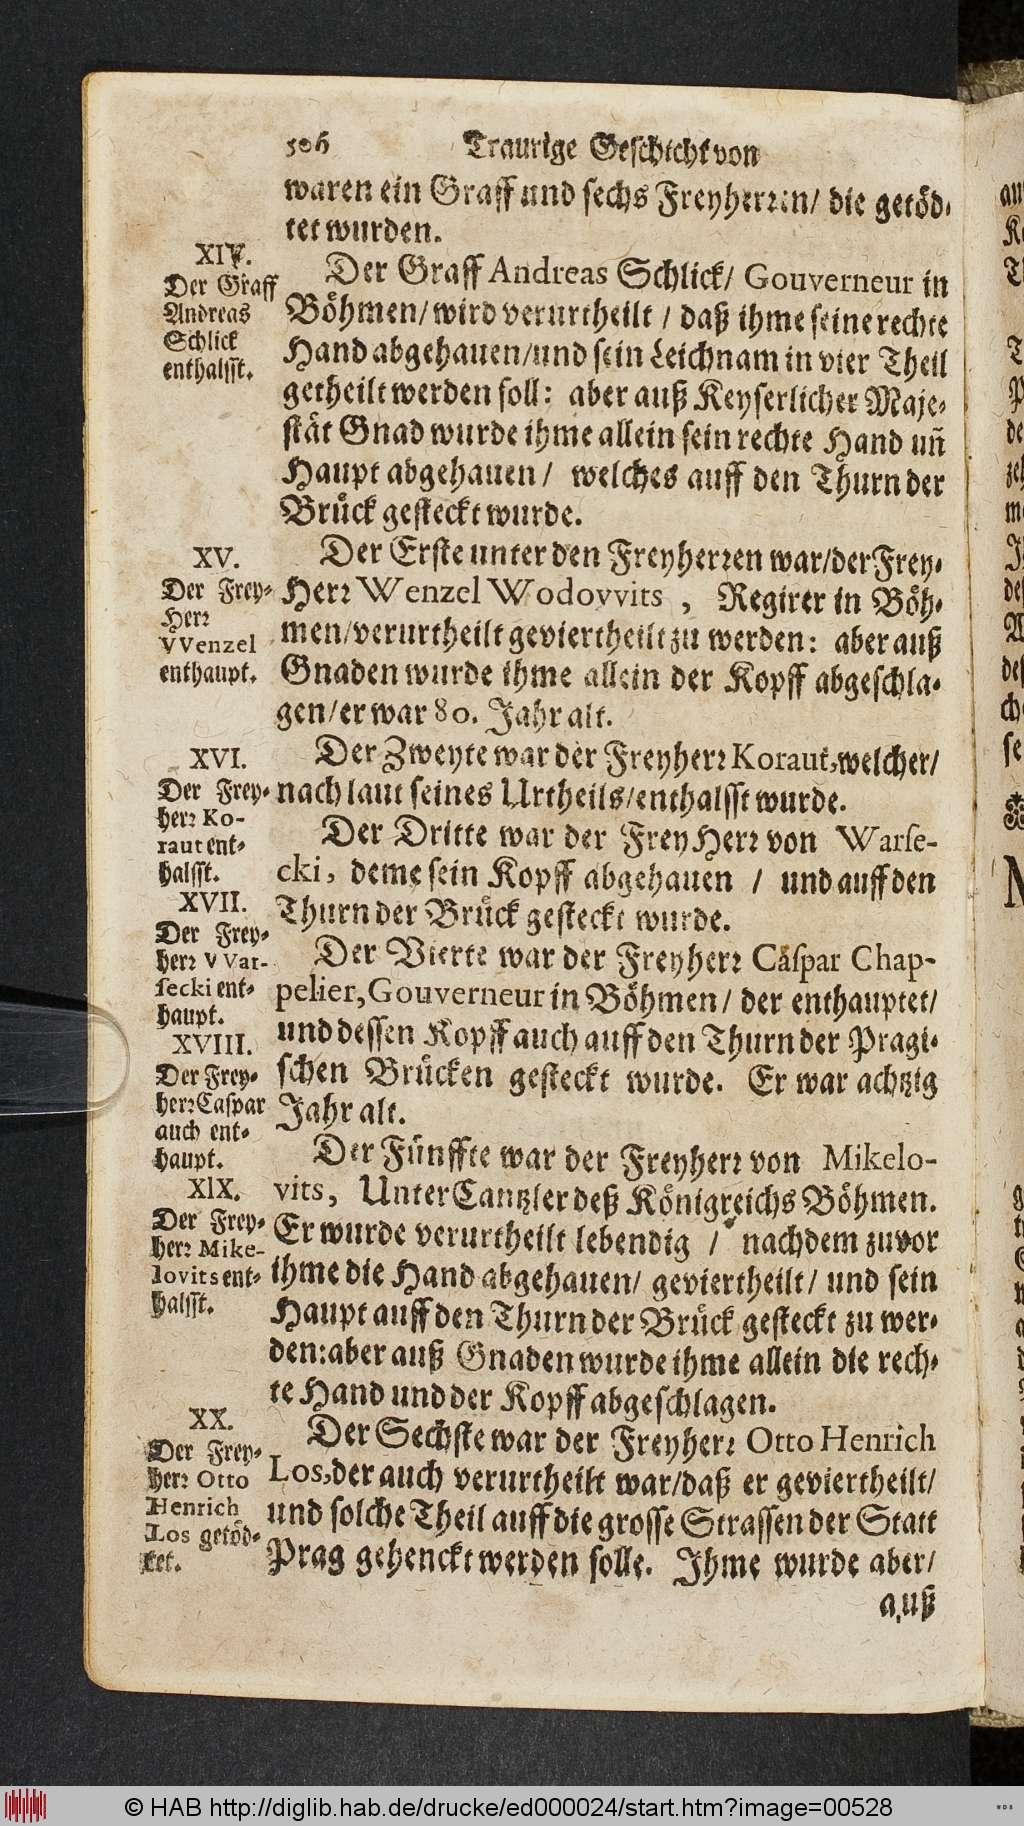 506 Traurige Geschicht von
waren ein Graff und sechs Freyherren/ die getöd-
tet wurden.
XIV.
Der Graff
Andreas
Schlick
enthalsst.
Der Graff Andreas Schlick/ Gouverneur in
Böhmen/ wird verurtheilt / daß ihme seine rechte
Hand abgehauen/und sein Leichnam in vier Theil
getheilt werden soll: aber auß Keyserlicher Maje-
stät Gnad wurde ihme allein sein rechte Hand uñ
Haupt abgehauen / welches auff den Thurn der
Brück gesteckt wurde.
XV.
Der Frey-
Herr
VVenzel
enthaupt.
Der Erste unter den Freyherren war/der Frey-
Herr Wenzel Wodovvits , Regirer in Böh-
men/verurtheilt geviertheilt zu werden: aber auß
Gnaden wurde ihme allein der Kopff abgeschla-
gen/er war 80. Jahr alt.
XVI.
Der Frey-
herr Ko-
raut ent-
halsst.
Der Zweyte war der Freyherr Koraut, welcher/
nach laut seines Urtheils/enthalsst wurde.
XVII.
Der Frey-
herr VVar-
secki ent-
haupt.
Der Dritte war der FreyHerr von Warse-
cki, deme sein Kopff abgehauen / und auff den
Thurn der Brück gesteckt wurde.
XVIII.
Der Frey-
herr Caspar
auch ent-
haupt.
Der Vierte war der Freyherr Caspar Chap-
pelier, Gouverneur in Böhmen/ der enthauptet/
und dessen Kopff auch auff den Thurn der Pragi-
schen Brücken gesteckt wurde. Er war achtzig
Jahr alt.
XIX.
Der Frey-
herr Mike-
lovits ent-
halsst.
Der Fünffte war der Freyherr von Mikelo-
vits, UnterCantzler deß Königreichs Böhmen.
Er wurde verurtheilt lebendig / nachdem zuvor
ihme die Hand abgehauen/ geviertheilt/ und sein
Haupt auff den Thurn der Brück gesteckt zu wer-
den: aber auß Gnaden wurde ihme allein die rech-
te Hand und der Kopff abgeschlagen.
XX.
Der Frey-
herr Otto
Henrich
Los getöd-
tet.
Der Sechste war der Freyherr Otto Henrich
Los, der auch verurtheilt war/daß er geviertheilt/
und solche Theil auff die grosse Strassen der Statt
Prag gehenckt werden solle. Ihme wurde aber/
auß
© HAB http://diglib.hab.de/drucke/ed000024/start.htm?image=00528